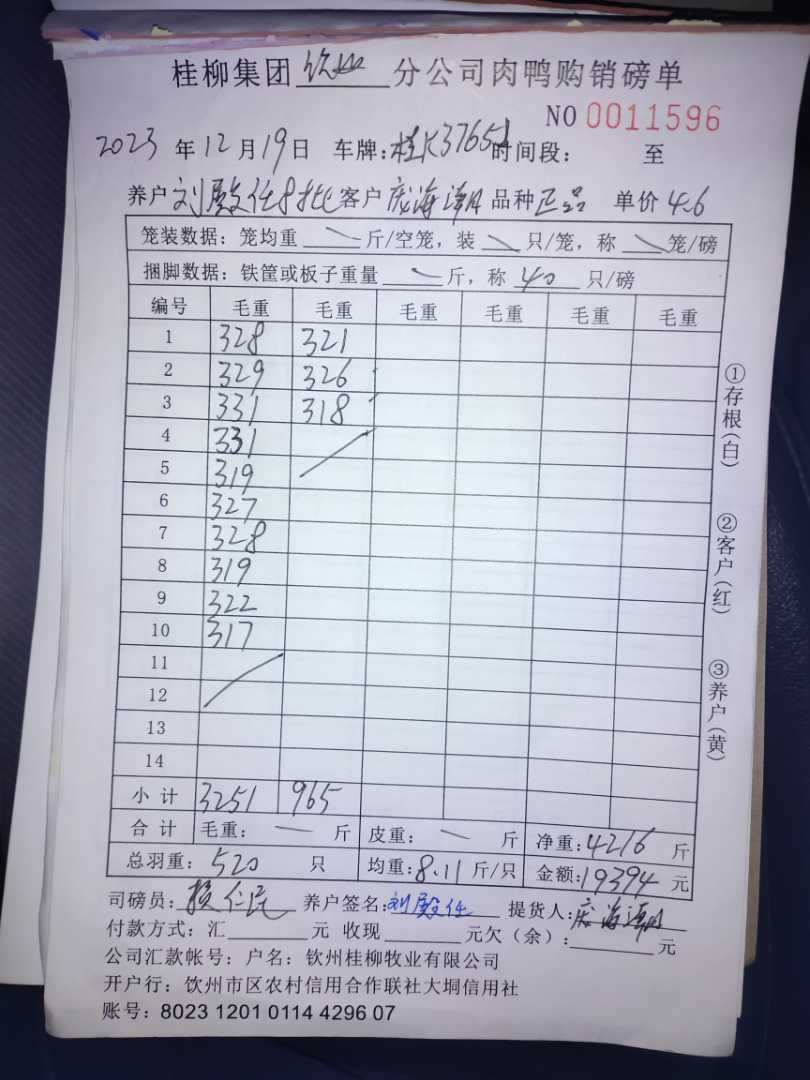 桂柳集团 钦州 分公司肉鸭购销磅单
NO 0011596
2023 年 12 月 19 日 车牌:桂K37651 时间段: 至
养户 刘殿任8批 客户 庞海潮 品种 正品 单价 4.6
笼装数据:笼均重 斤/空笼,装 只/笼,称 笼/磅
捆脚数据:铁筐或板子重量 斤,称 40 只/磅
编号 毛重 毛重 毛重 毛重 毛重 毛重
1 328 321
2 329 326
3 331 318
4 331
5 319
6 327
7 328
8 319
9 322
10 317
11
12
13
14
小计 3251 965
合计 毛重: — 斤 皮重: — 斤 净重:4216 斤
总羽重: 520 只 均重:8.11 斤/只 金额:19394 元
司磅员: 养户签名:刘殿任 提货人:庞海潮
付款方式:汇 元 收现 元欠(余): 元
公司汇款帐号:户名:钦州桂柳牧业有限公司
开户行:饮州市区农村信用合作联社大垌信用社
账号:8023 1201 0114 4296 07
①存根(白)
②客户(红)
③养户(黄)